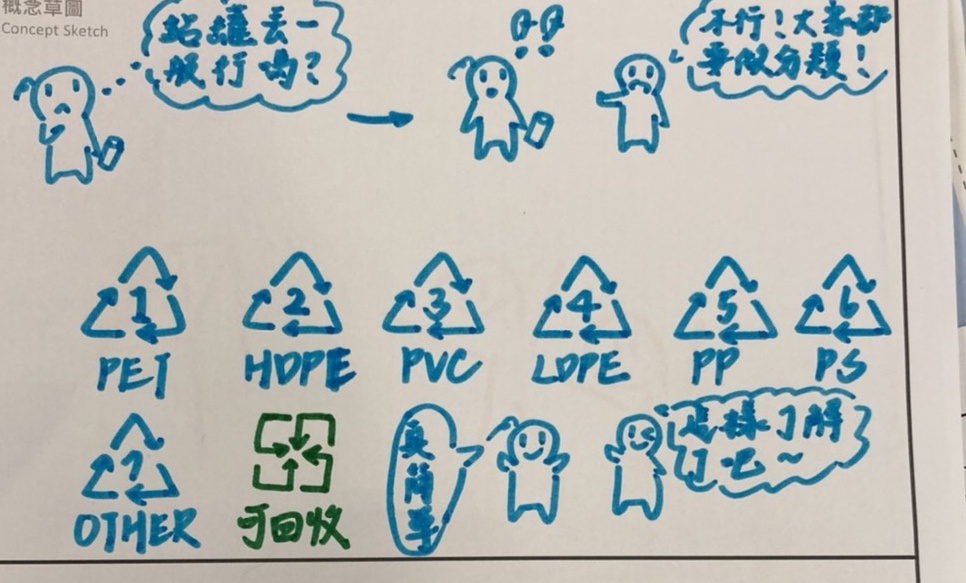 概念草圖
Concept Sketch
丟一
般行嗎?
不行!大家都
要做分類!
1
2
3
4
5
6
PET
HDPE
PVC
LDPE
PP
PS
7
OTHER
可回收
真簡單
怎樣了解
了吧~